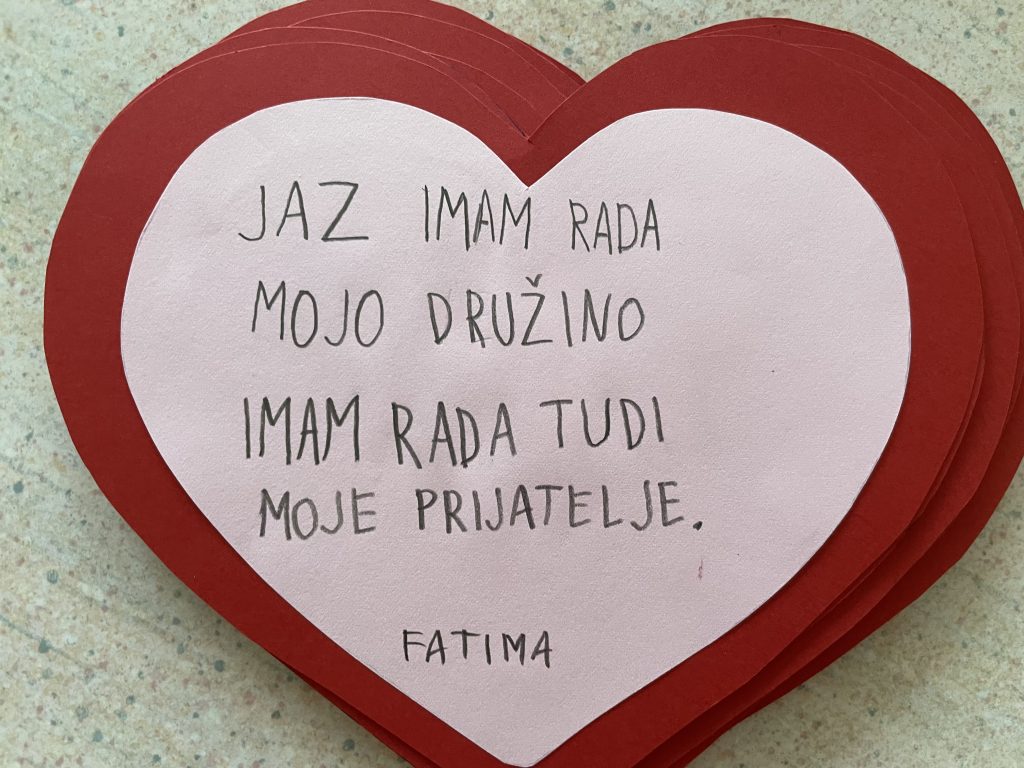 JAZ IMAM RADA
MOJO DRUŽINO
IMAM RADA TUDI
MOJE PRIJATELJE.
FATIMA